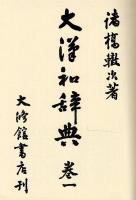 諸橋轍次著
大漢和辭典 卷一
大修館書店刊